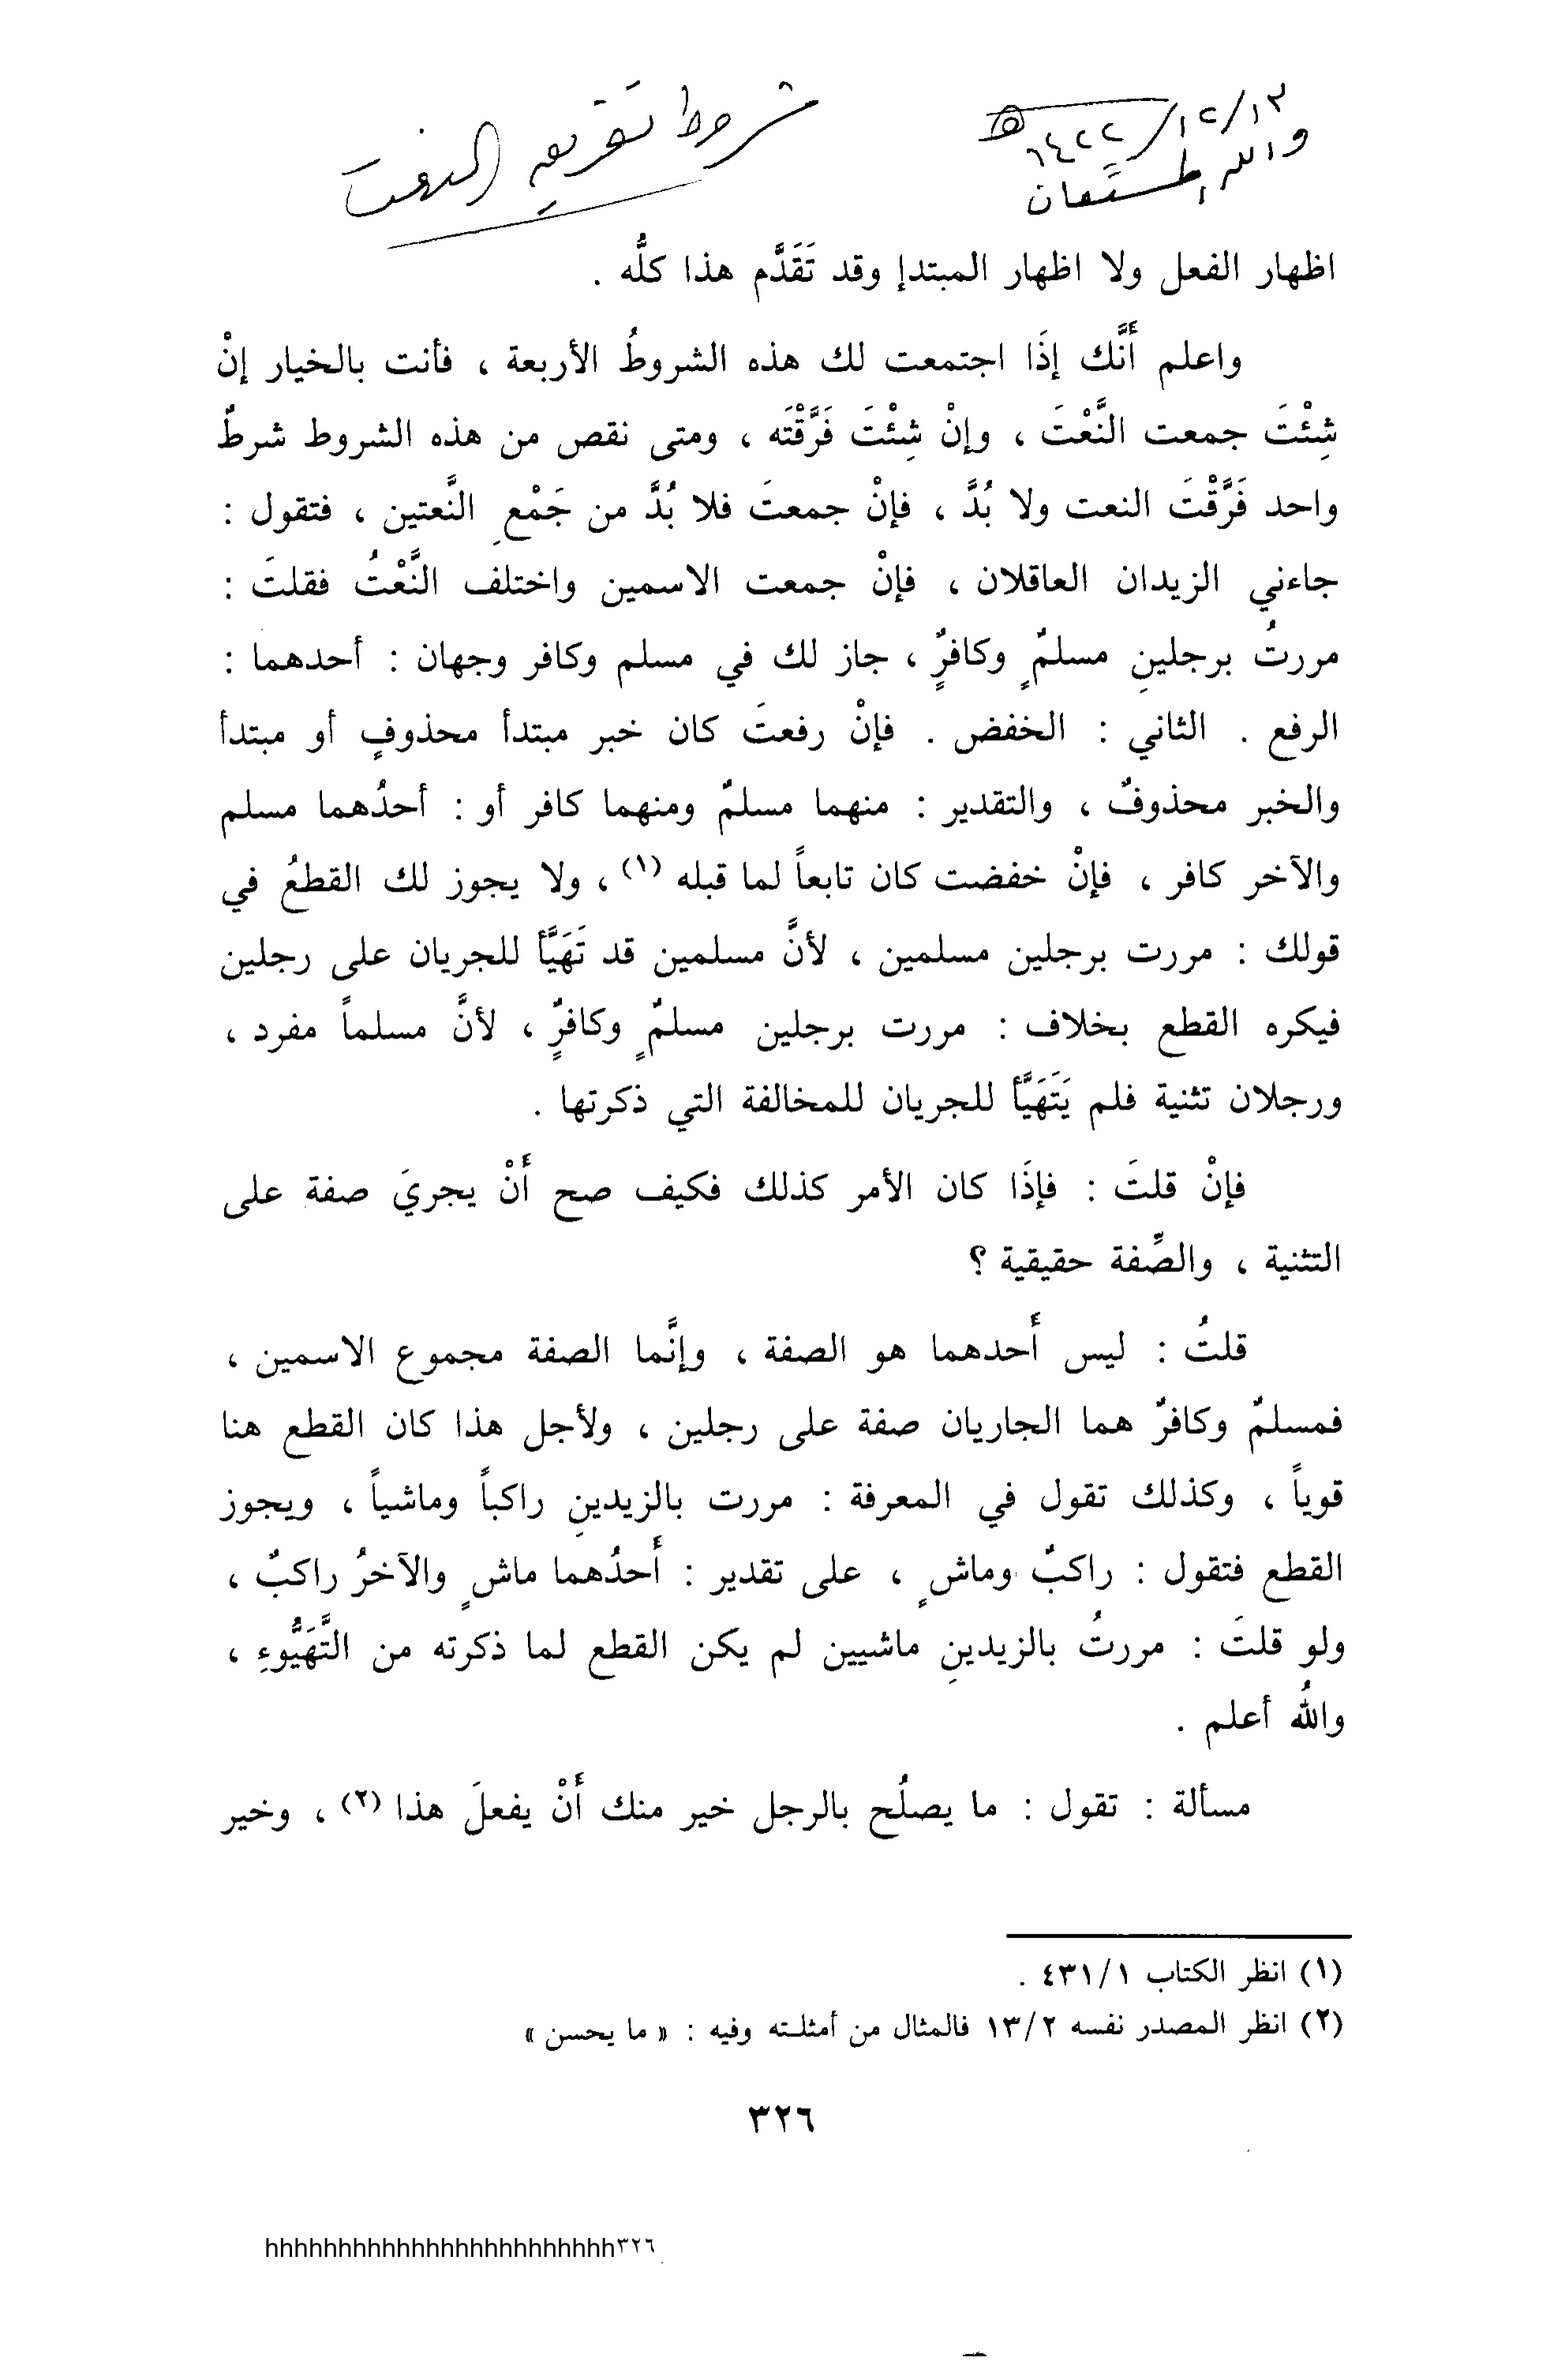 ١٣/١٢/١٤٢٢ هـ
والله المستعان
شروط تفريق النعت
اظهار الفعل ولا اظهار المبتدإ وقد تَقَدَّم هذا كلُّه .
واعلم أَنَّك إذَا اجتمعت لك هذه الشروطُ الأربعة ، فأنت بالخيار إنْ
شِئْتَ جمعت النَّعْتَ ، وإنْ شِئْتَ فَرَّقْتَه ، ومتى نقص من هذه الشروط شرطٌ
واحد فَرَّقْتَ النعت ولا بُدَّ ، فإنْ جمعتَ فلا بُدَّ من جَمْعِ النَّعتين ، فتقول :
جاءني الزيدان العاقلان ، فإنْ جمعت الاسمين واختلف النَّعْتُ فقلتَ :
مررتُ برجلينِ مسلمٌٍ وكافرٌٍ ، جاز لك في مسلم وكافر وجهان : أحدهما :
الرفع . الثاني : الخفض . فإنْ رفعتَ كان خبر مبتدأ محذوفٍ أو مبتدأ
والخبر محذوفٌ ، والتقدير : منهما مسلمٌ ومنهما كافر أو : أحدُهما مسلم
والآخر كافر ، فإنْ خفضت كان تابعاً لما قبله (١) ، ولا يجوز لك القطعُ في
قولك : مررت برجلين مسلمين ، لأنَّ مسلمين قد تَهَيَّأ للجريان على رجلين
فيكره القطع بخلاف : مررت برجلين مسلمٌٍ وكافرٌٍ ، لأنَّ مسلماً مفرد ،
ورجلان تثنية فلم يَتَهَيَّأ للجريان للمخالفة التي ذكرتها .
فإنْ قلتَ : فإذَا كان الأمر كذلك فكيف صح أَنْ يجريَ صفة على
التثنية ، والصِّفة حقيقية ؟
قلتُ : ليس أَحدهما هو الصفة ، وإنَّما الصفة مجموع الاسمين ،
فمسلمٌ وكافرٌ هما الجاريان صفة على رجلين ، ولأجل هذا كان القطع هنا
قوياً ، وكذلك تقول في المعرفة : مررت بالزيدينِ راكباً وماشياً ، ويجوز
القطع فتقول : راكبٌ وماشٍ ، على تقدير : أَحدُهما ماشٍ والآخرُ راكبٌ ،
ولو قلتَ : مررتُ بالزيدينِ ماشيين لم يكن القطع لما ذكرته من التَّهَيُّوءِ ،
واللهُ أعلم .
مسألة : تقول : ما يصلُح بالرجل خير منك أَنْ يفعلَ هذا (٢) ، وخير
(١) انظر الكتاب ٤٣١/١ .
(٢) انظر المصدر نفسه ١٣/٢ فالمثال من أمثلـته وفيه : « ما يحسن »
٣٢٦
hhhhhhhhhhhhhhhhhhhhhhhh٣٢٦